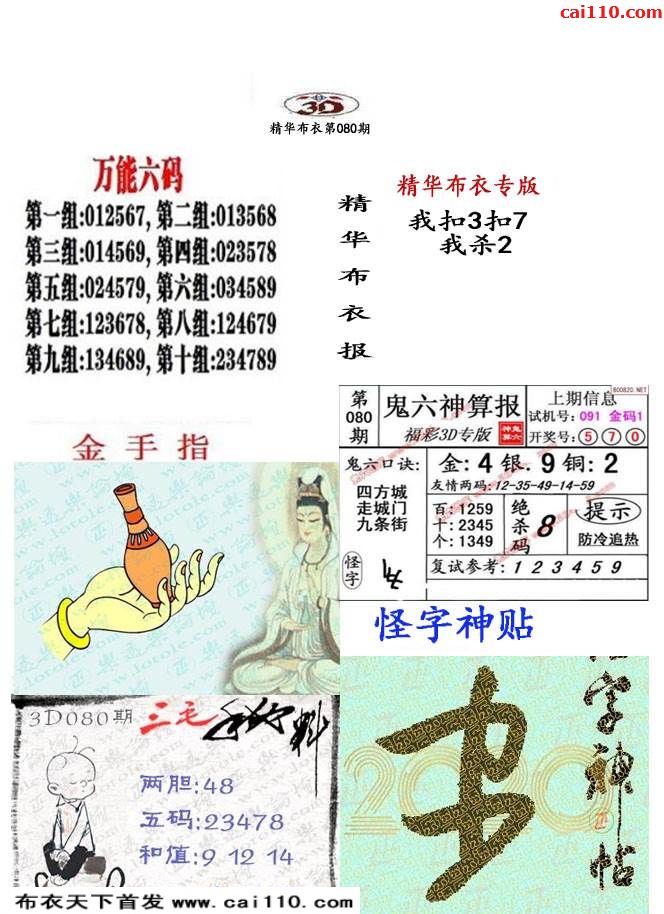 cai110.com
3D
精华布衣第080期
万能六码
第一组:012567, 第二组:013568
第三组:014569, 第四组:023578
第五组:024579, 第六组:034589
第七组:123678, 第八组:124679
第九组:134689, 第十组:234789
精华布衣报
精华布衣专版
我扣3扣7
我杀2
第080期
鬼六神算报
福彩3D专版
800820.NET
上期信息
试机号: 091 金码1
开奖号: 5 7 0
鬼六口诀:
四方城
走城门
九条街
怪字
金: 4 银. 9 铜: 2
友情两码: 12-35-49-14-59
百: 1259
十: 2345
个: 1349
绝杀码 8
提示
防冷追热
复试参考: 1 2 3 4 5 9
金手指
怪字神贴
3D080期 三毛
两胆:48
五码:23478
和值:9 12 14
怪字神帖
布衣天下首发 www.cai110.com